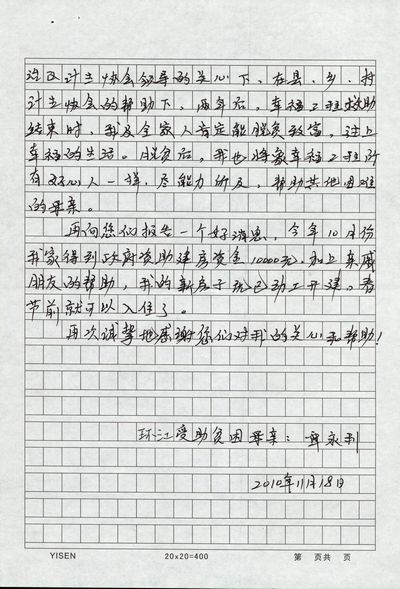 治区计生协会领导的关心下，在县、乡、村
计生协会的帮助下，两年后，幸福工程救助
结束时，我及全家人肯定能脱贫致富，过上
幸福的生活。脱贫后，我也将象幸福工程所
有好心人一样，尽能力所及，帮助其他困难
的母亲。
再向您们报告一个好消息，今年10月份
我家得到政府资助建房资金10000元，加上亲戚
朋友的帮助，我的新房子现已动工开建。春
节前就可以入住了。
再次诚挚地感谢您们对我的关心和帮助！
环江受助贫困母亲：覃永利
2010年11月18日
YISEN
20×20=400
第 页共 页